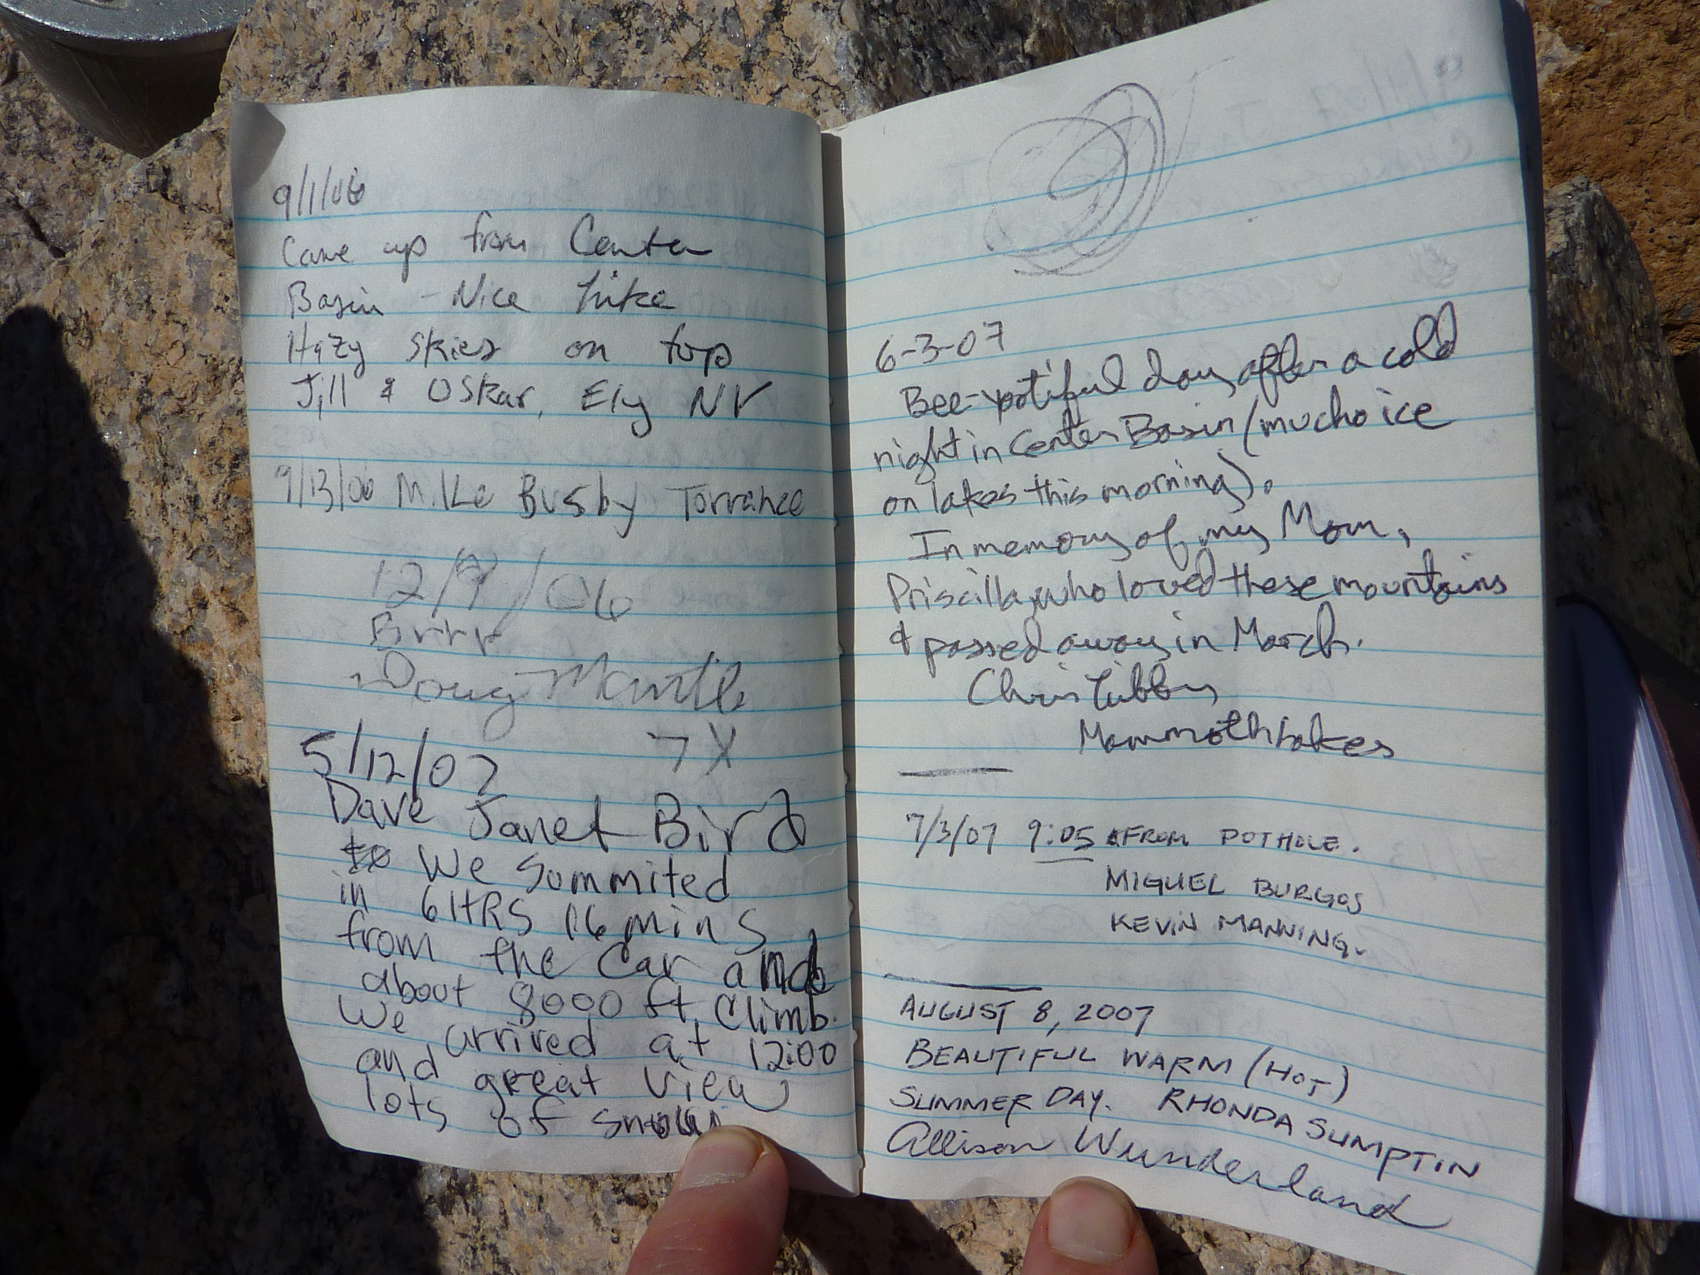 9/1/06
Came up from Center
Basin - Nice hike
Hazy skies on top
Jill & Oskar, Ely NV
9/13/06 Mike Busby Torrance
12/9/06
Brrrr
Doug Mantle
7X
5/12/07
Dave Janet Bird
to We Summited
in 6 HRS 16 mins
from the Car and
about 8000 ft Climb.
We arrived at 12:00
and great view
lots of snow
6-3-07
Bee-yotiful day after a cold
night in Center Basin (mucho ice
on lakes this morning).
In memory of my Mom,
Priscilla, who loved these mountains
& passed away in March.
Chris Libby
Mammoth Lakes
7/3/07 9:05 FROM POTHOLE.
MIGUEL BURGOS
KEVIN MANNING.
AUGUST 8, 2007
BEAUTIFUL WARM (HOT)
SUMMER DAY. RHONDA SUMPTIN
Allison Wunderland